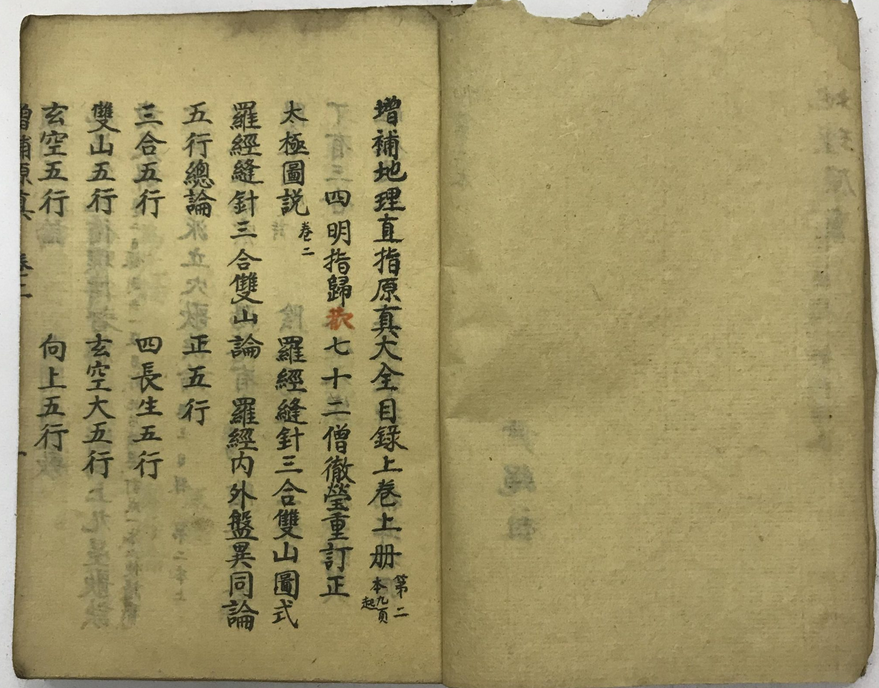 增補地理直指原真大全目錄上卷上册 第二本九頁起
四明指歸歡七十二僧徹瑩重訂正
太極圖説 卷二 羅經縫針三合雙山圖式
羅經縫針三合雙山論 羅經内外盤異同論
五行總論 正五行
三合五行 四長生五行
雙山五行 玄空大五行
玄空五行 向上五行
增補原真 卷二